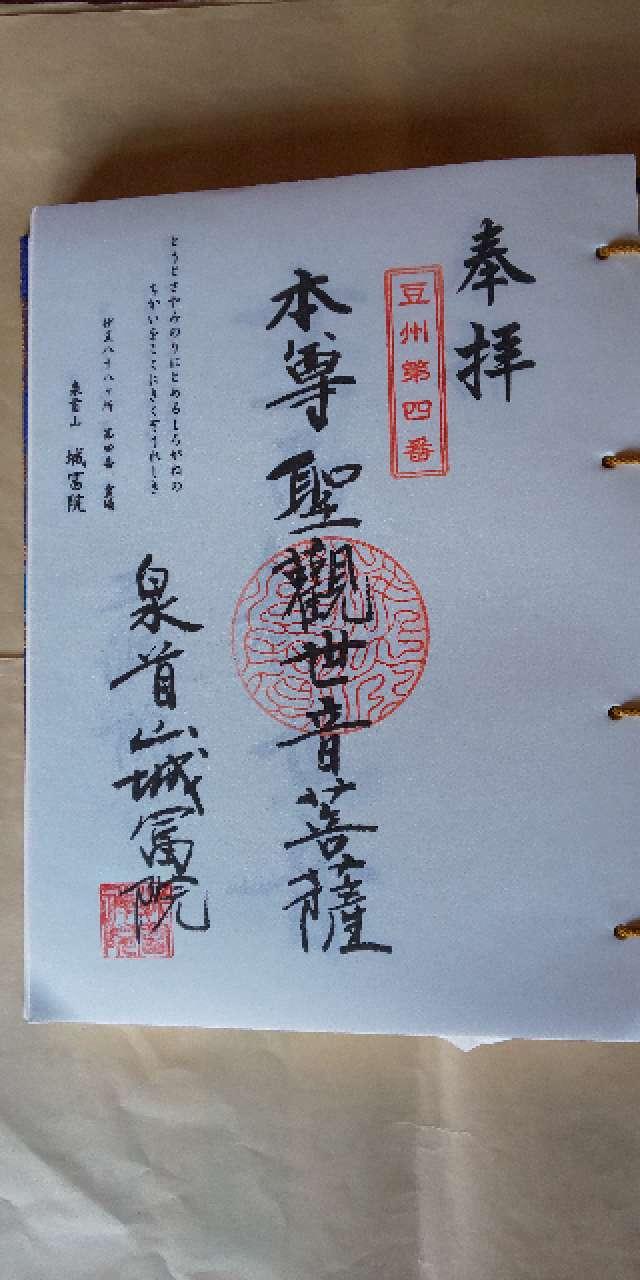 奉拝
豆州第四番
本尊聖觀世音菩薩
とうとさやみのりにとめるしろがねの
ちかいをここにきくぞうれしき
伊豆八十八ヶ所 第四番 霊場
泉首山 城富院
泉首山城富院